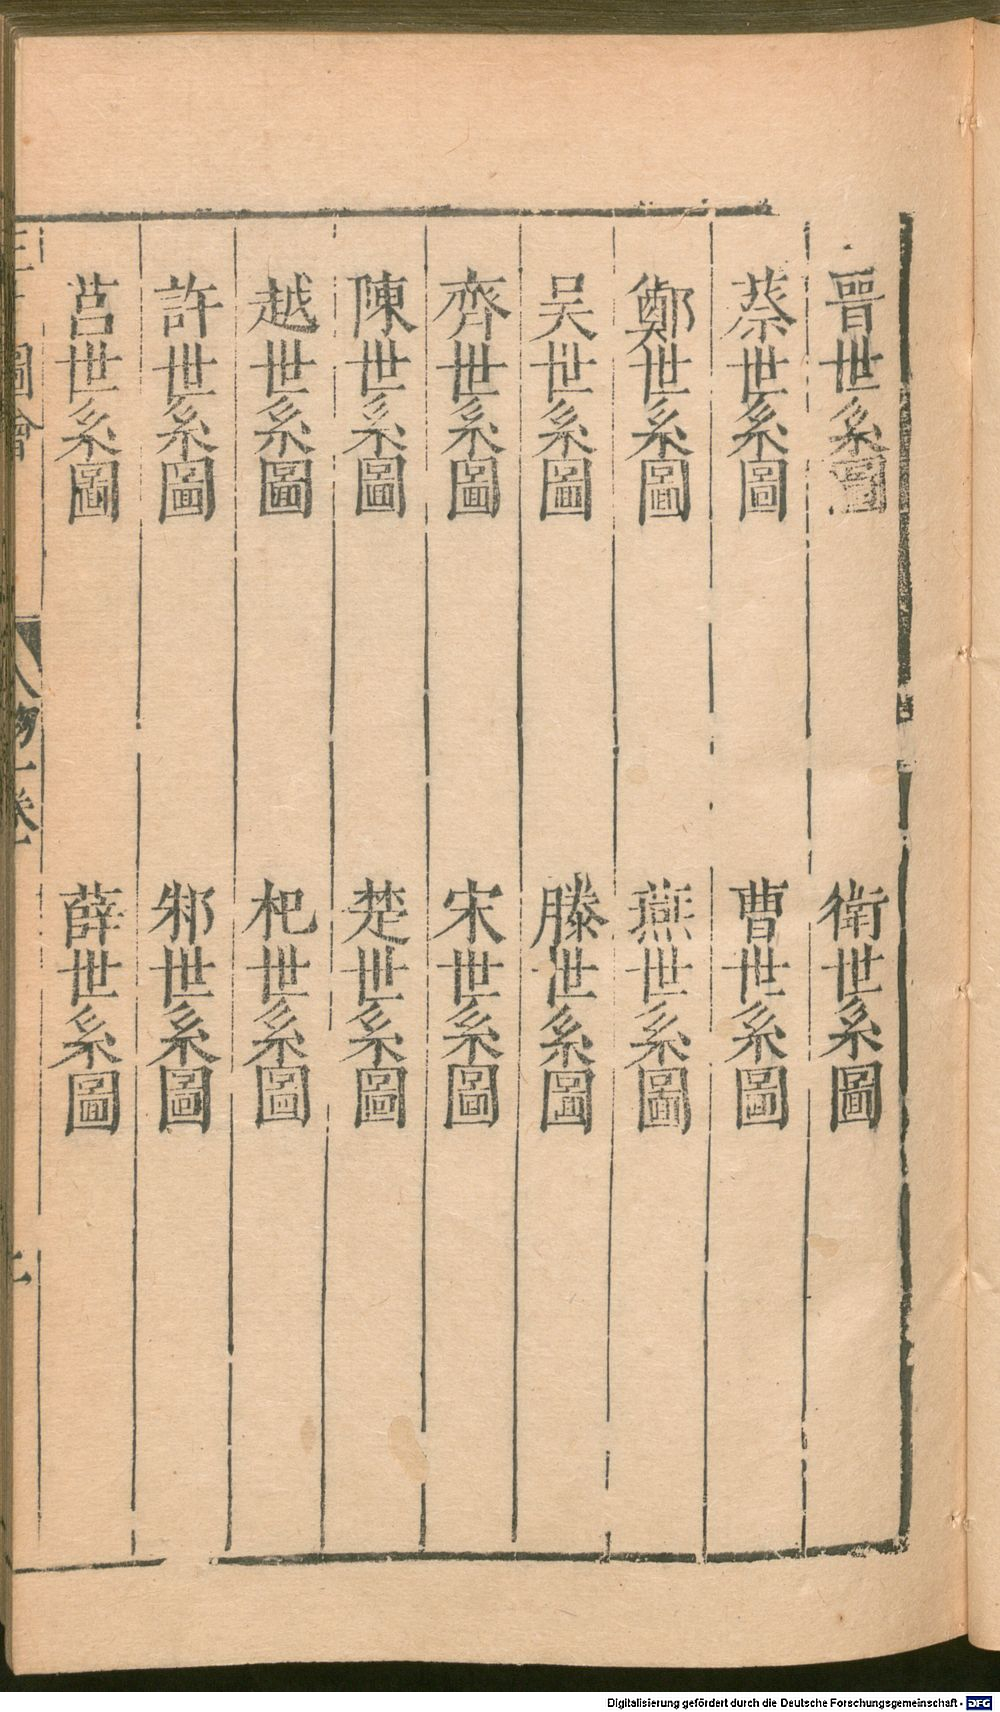 晉世系圖　衛世系圖
蔡世系圖　曹世系圖
鄭世系圖　燕世系圖
吴世系圖　滕世系圖
齊世系圖　宋世系圖
陳世系圖　楚世系圖
越世系圖　杞世系圖
許世系圖　邾世系圖
莒世系圖　薛世系圖
圖會　人物一卷
Digitalisierung gefördert durch die Deutsche Forschungsgemeinschaft - DFG